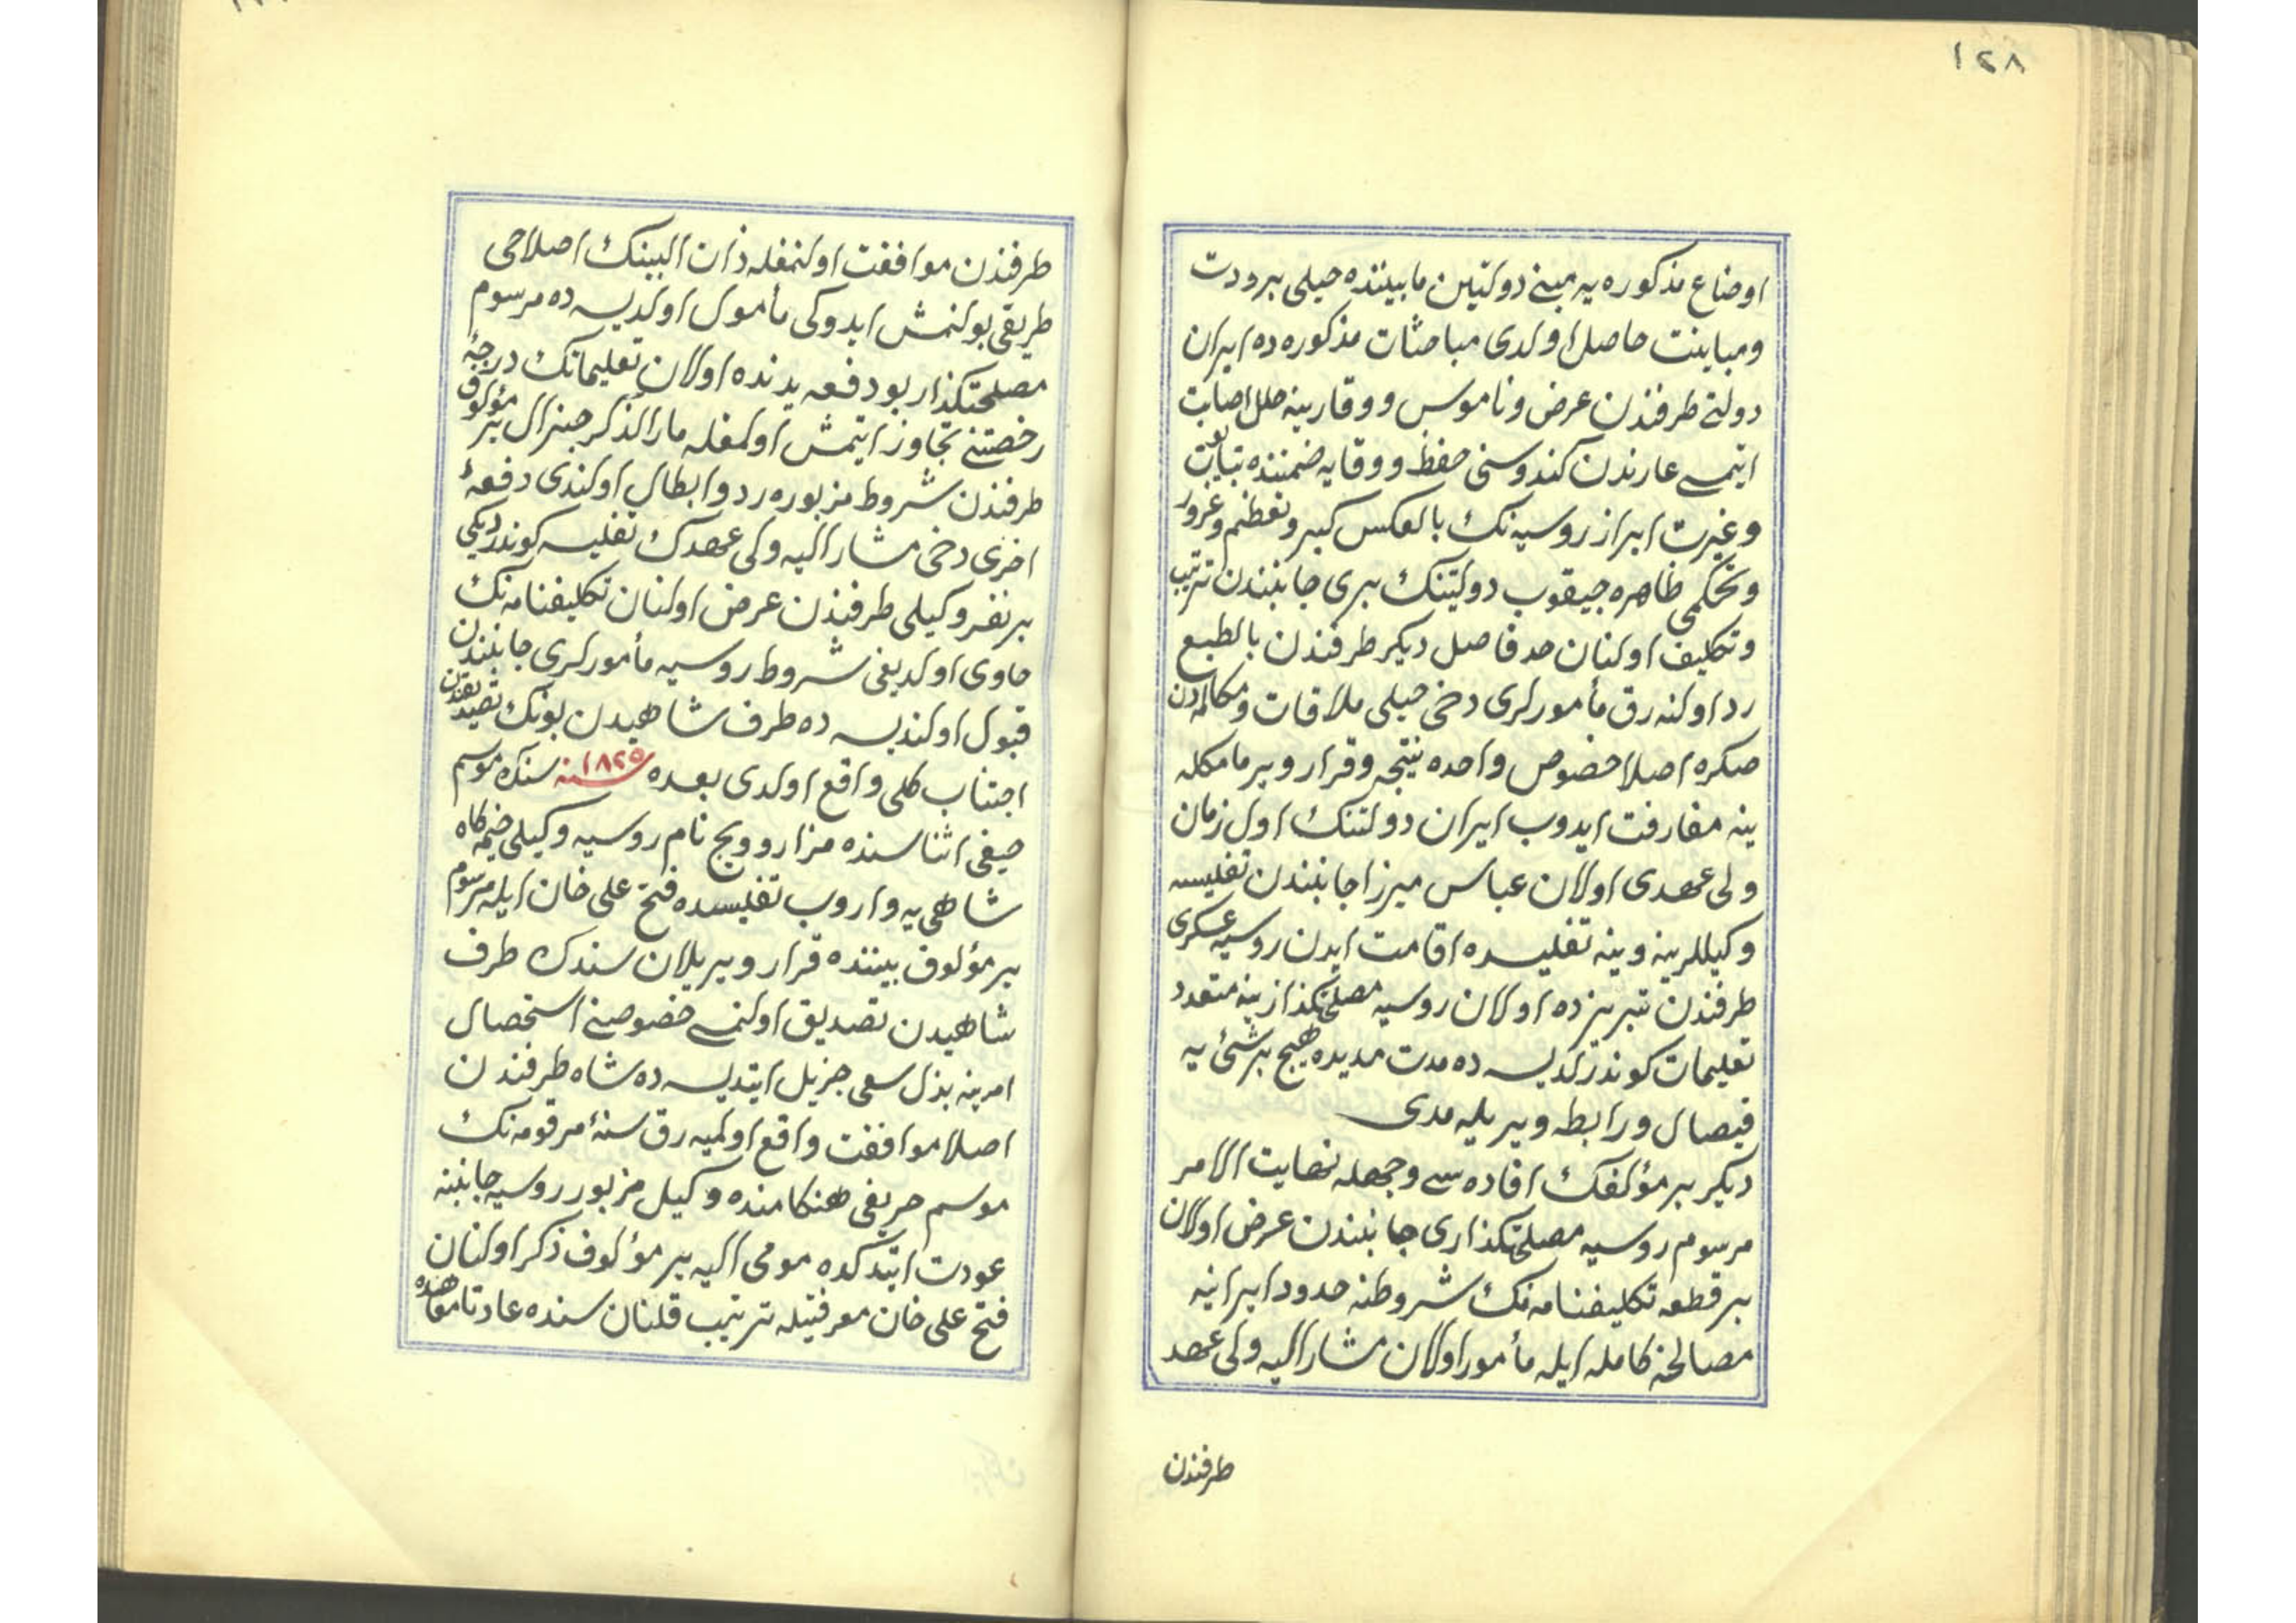 ١٢٨
اوضاع مذكوره يه مبنى دولتين مابيننده خيلى برودت
ومباينت حاصل اولدى مباحثات مذكوره ده ايران
دولتى طرفندن عرض وناموس ووقارينه خلل اصابت
ايتمسى عارندن كندوسنى حفظ ووقايه ضمننده
وغيرت ابراز روسيه نك بالعكس كبر وتعظم وغرور
وتحكمى ظاهره چيقوب دولتينك برى جانبندن ترتيب
وتكليف اولنان حد فاصل ديكر طرفندن بالطبع
رد اولنه رق مأمورلرى دخى خيلى ملاقات ومكالمه دن
صكره اصلا خصوص واحده نتيجه وقرار ويرمامكله
ينه مفارقت ايدوب ايران دولتنك اول زمان
ولى عهدى اولان عباس ميرزا جانبندن تفليسه
وكيللرينه وينه تفليسده اقامت ايدن روسيه عسكرى
طرفندن تبريزده اولان روسيه مصلحتكذارينه متعدد
تعليمات كوندرلديسه ده مدت مديده هيچ برشئ يه
فيصال ورابطه ويريليه مدى
ديكر بر مؤلفك افاده سى وجهله نهايت الامر
مرسوم روسيه مصلحتكذارى جانبندن عرض اولان
بر قطعه تكليفنامه نك شروطنه حدود ايرانيه
مصالحۀ كامله ايله مأمور اولان مشار اليه ولى عهد
طرفندن
طرفندن موافقت اولنمغله ذات البينك اصلاحى
طريقى بولنمش ايدوكى مأمول اولديسه ده مرسوم
مصلحتكذار بو دفعه يدنده اولان تعليماتك درجۀ
رخصتنى تجاوز ايتمش اولمغله مار الذكر جنرال يرمؤلوف
طرفندن شروط مزبوره رد وابطال اولندى دفعۀ
اخرى دخى مشار اليه ولى عهدك تفليسه كوندرديكى
بر نفر وكيلى طرفندن عرض اولنان تكليفنامه نك
حاوى اولديغى شروط روسيه مأمورلرى جانبندن
قبول اولنديسه ده طرف شاهيدن بونك تصديقندن
اجتناب كلى واقع اولدى بعده ١٨٢٥ سنه سنك موسم
صيفى اثناسنده مزاروويچ نام روسيه وكيلى خيمه كاه
شاهى يه واروب تفليسده فتح على خان ايله مرسوم
يرمؤلوف بيننده قرار ويريلان سندك طرف
شاهيدن تصديق اولنمسى خصوصنى استحصال
امرينه بذل سعى جزيل ايتديسه ده شاه طرفندن
اصلا موافقت واقع اولميه رق سنۀ مرقومه نك
موسم خريفى هنكامنده وكيل مزبور روسيه جانبنه
عودت ايتدكده مومى اليه يرمؤلوف ذكر اولنان
فتح على خان معرفتيله ترتيب قلنان سنده عادتا معاهده